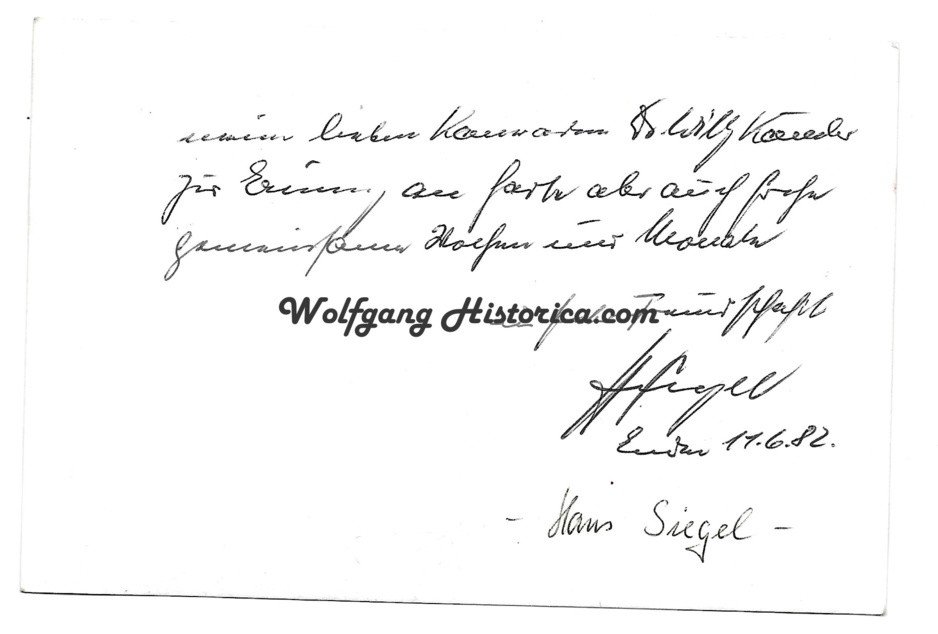 meinem lieben Kameraden Dr Willy Kaeuder
zur Erinnerung an harte aber auch frohe
gemeinsame Wochen und Monate
Wolfgang Historica.com
Freundschaft
HSiegel
11.6.82.
- Hans Siegel -